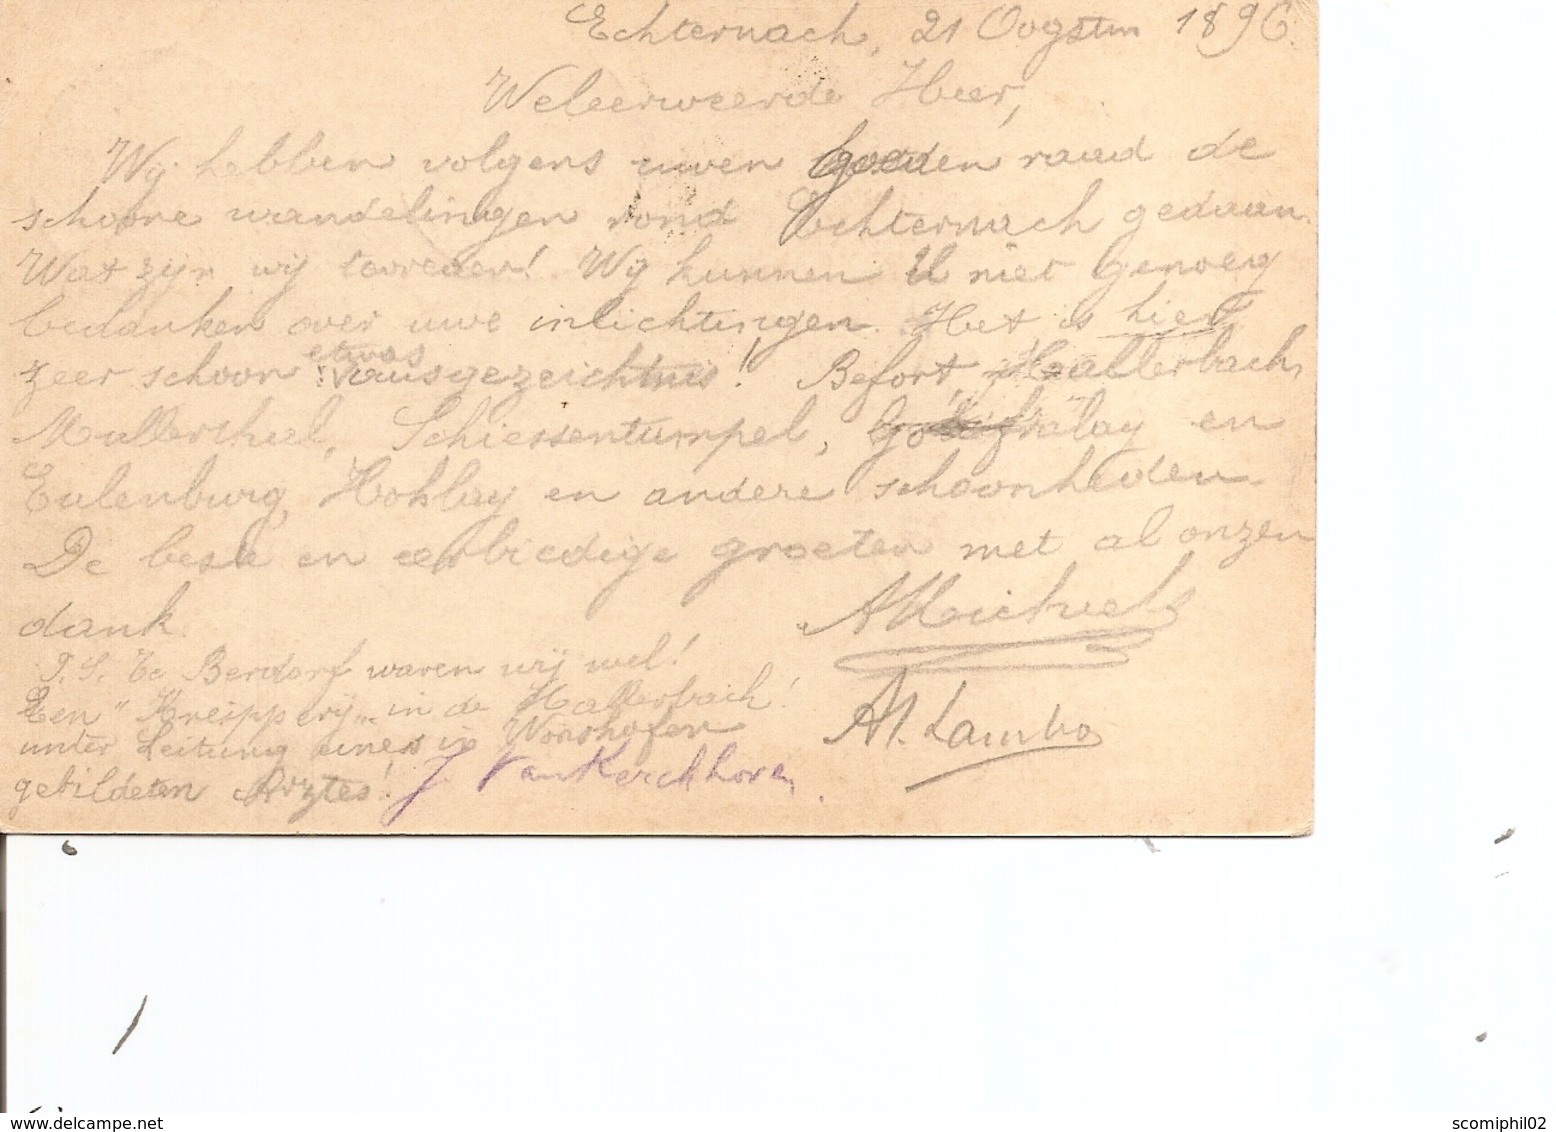 Echternach, 21 Oogstm 1896.
Weleerweerde Heer,
Wij hebben volgens uwen goeden raad de
schoone wandelingen rond Echternach gedaan.
Wat zijn wij tevreden! Wij kunnen U niet genoeg
bedanken over uwe inlichtingen. Het is hier
zeer schoon! etwas ausgezeichtnis! Befort, Hallerbach,
Mullerthal, Schiessentumpel, en
Eulenburg, Hohlay en andere schoonheden.
De beste en eerbiedige groeten met al onzen
dank. A Michiels
P.S. Te Berdorf waren wij wel!
Een "Kneipperij" in de Hallerbach!
unter Leitung eines in Worishofen
gebildeten Arztes! J VanKerckhoven.
Al. Lambo
www.delcampe.net
scomiphil02